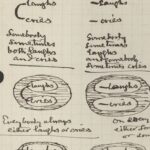 laughs
cries
Somebody
sometimes
both laughs
and cries
laughs
cries
Everybody always
either laughs or cries
laughs
— cries
Somebody
sometimes
laughs
and somebody
sometimes cries
—laughs—
—cries—
On every
either som
or som